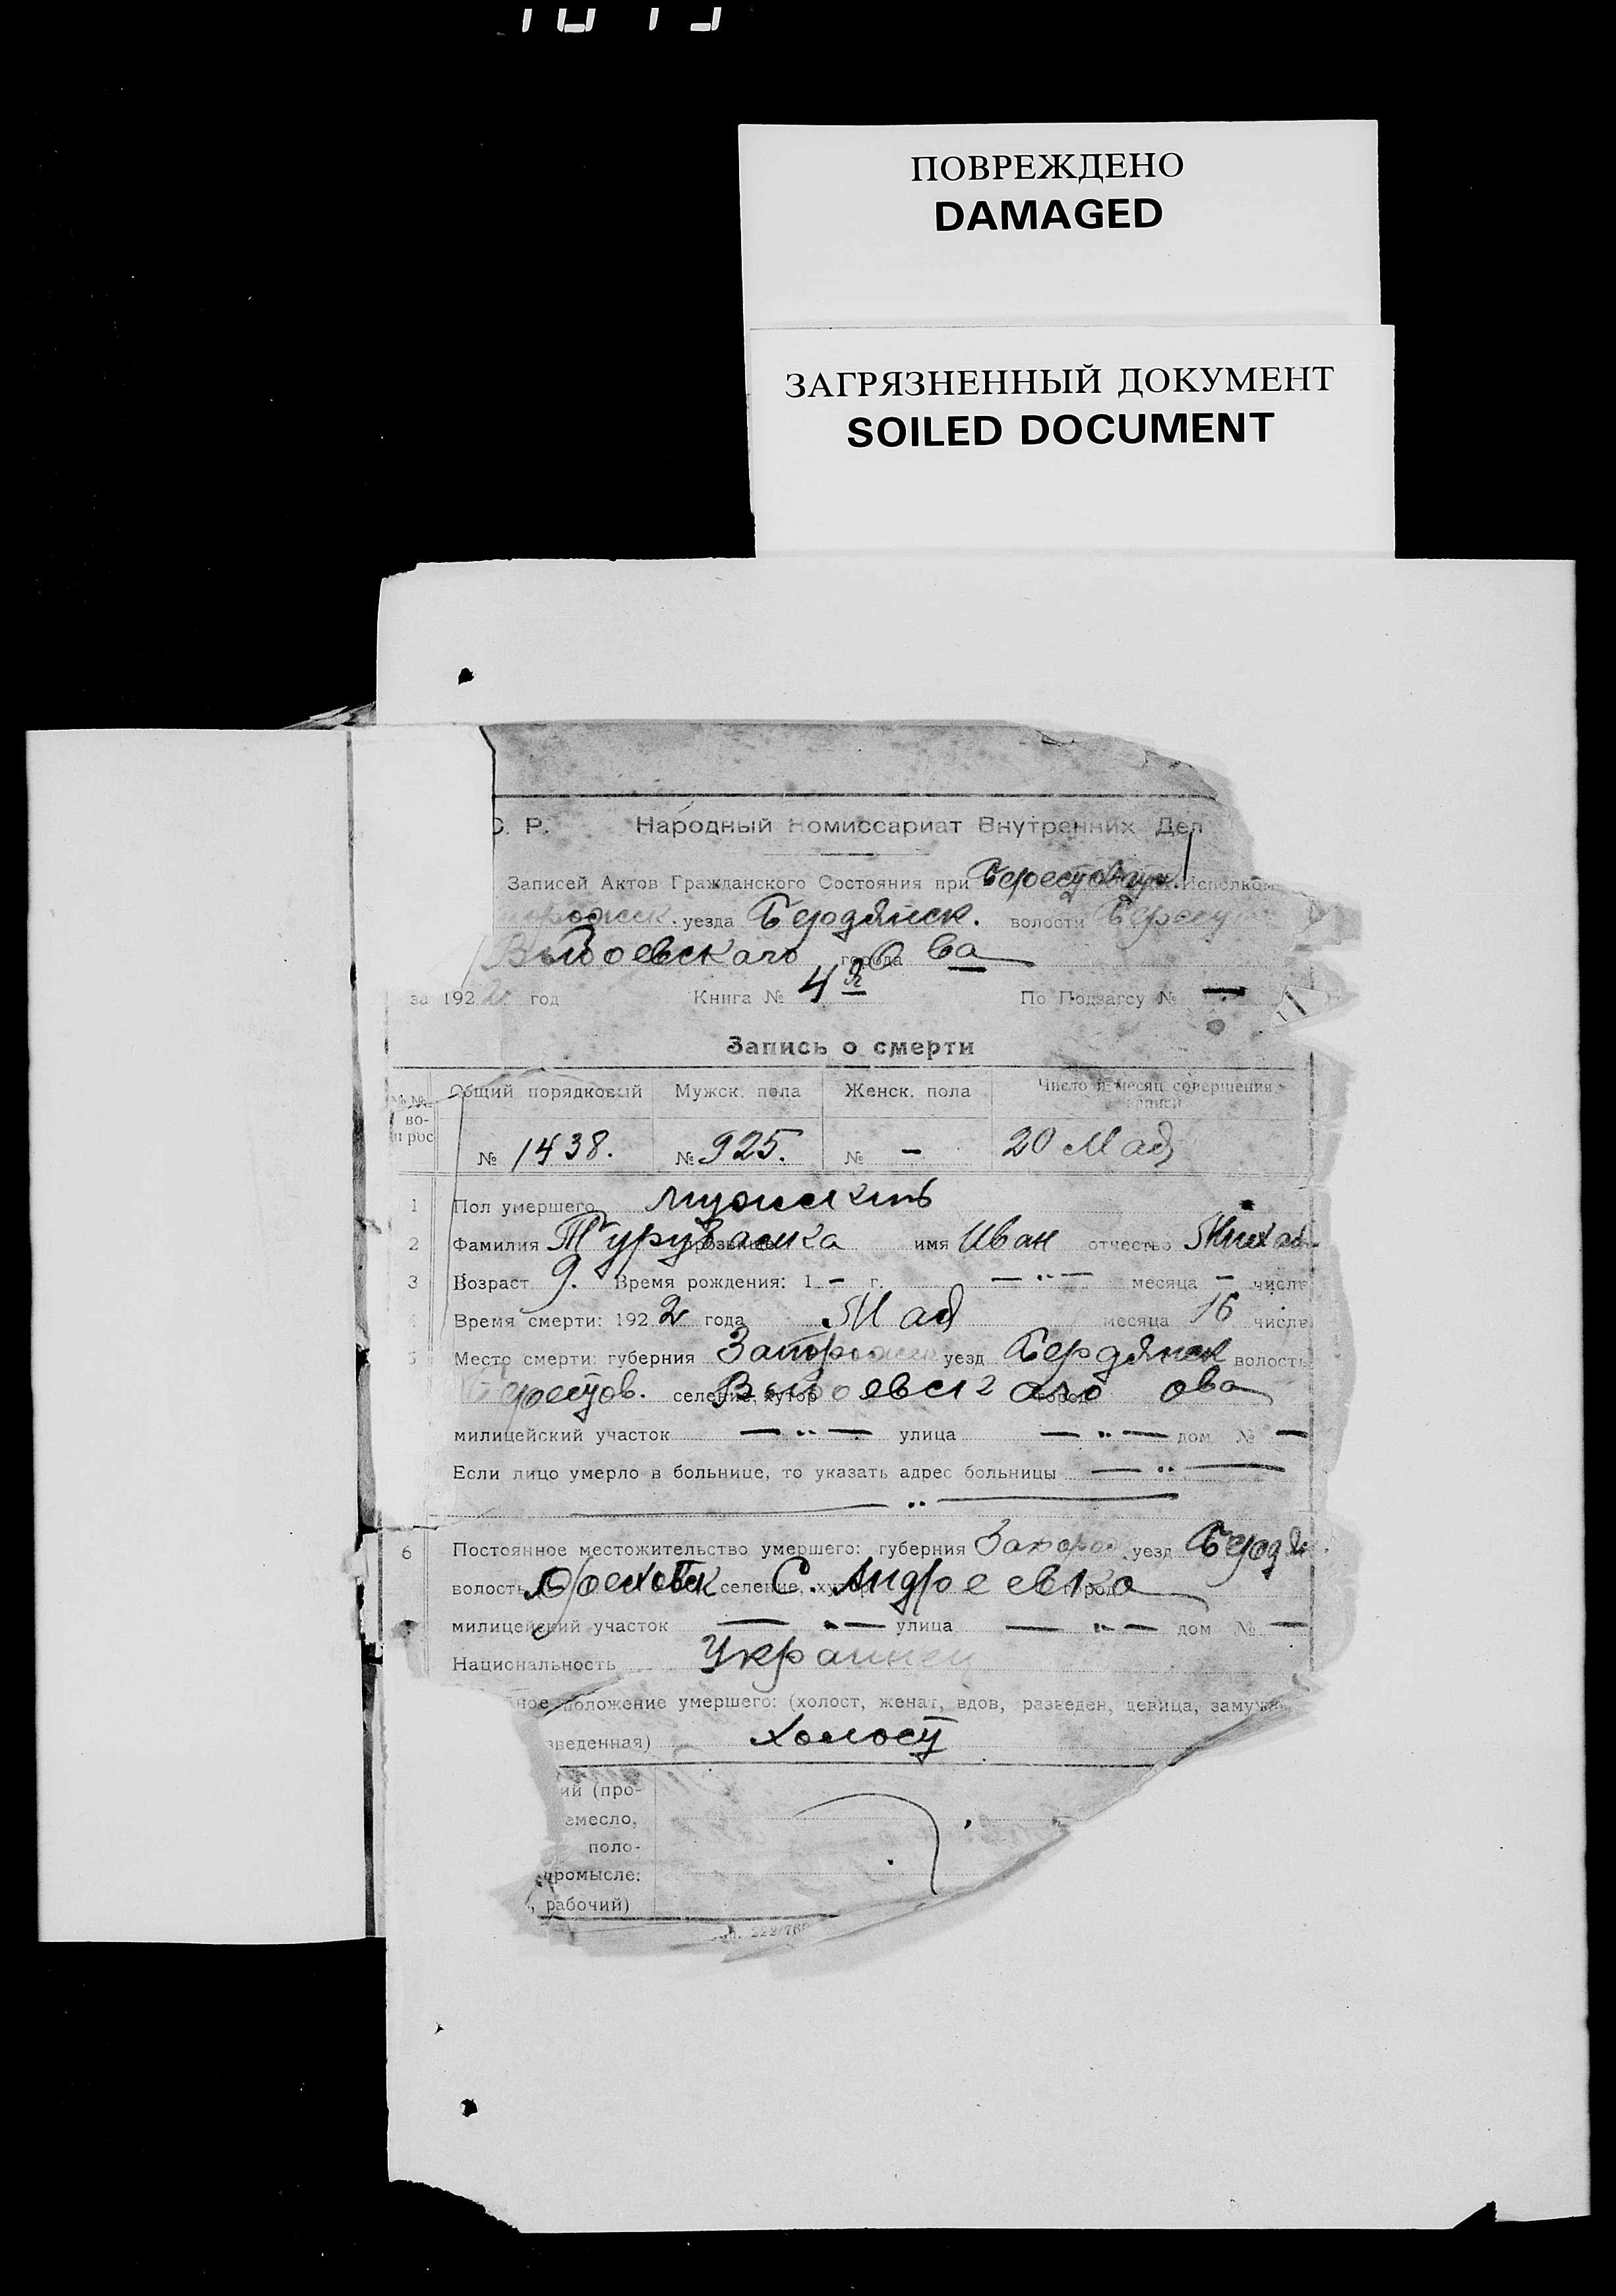 ПОВРЕЖДЕНО
DAMAGED
ЗАГРЯЗНЕННЫЙ ДОКУМЕНТ
SOILED DOCUMENT
С. Р. Народный Комиссариат Внутренних Дел
Записей Актов Гражданского Состояния при Исполком
уезда Бердянск. волости
города
за 1922 год Книга № 4 По Подзагсу № —
Запись о смерти
№№ во- прос Общий порядковый Мужск. пола Женск. пола Число и месяц совершения записи
№ 1438. № 925. № — 20 Мая
1 Пол умершего
2 Фамилия прозвище имя Иван отчество Михай
3 Возраст 9. Время рождения: 1 — г. — " — месяца — числа
4 Время смерти: 1922 года Мая месяца 16 числа
5 Место смерти: губерния Запорожск уезд Бердянск волость
Берестов. селение, хутор город
милицейский участок — " — улица — " — дом № —
Если лицо умерло в больнице, то указать адрес больницы — " —
— " —
6 Постоянное местожительство умершего: губерния Запорож уезд Бердя
волость селение, хутор С. Андреевка город
милицейский участок — " — улица — " — дом № —
Национальность Украинец
ное положение умершего: (холост, женат, вдов, разведен, девица, замужн
зведенная) холост
ий (про-
емесло,
поло-
промысле:
, рабочий)